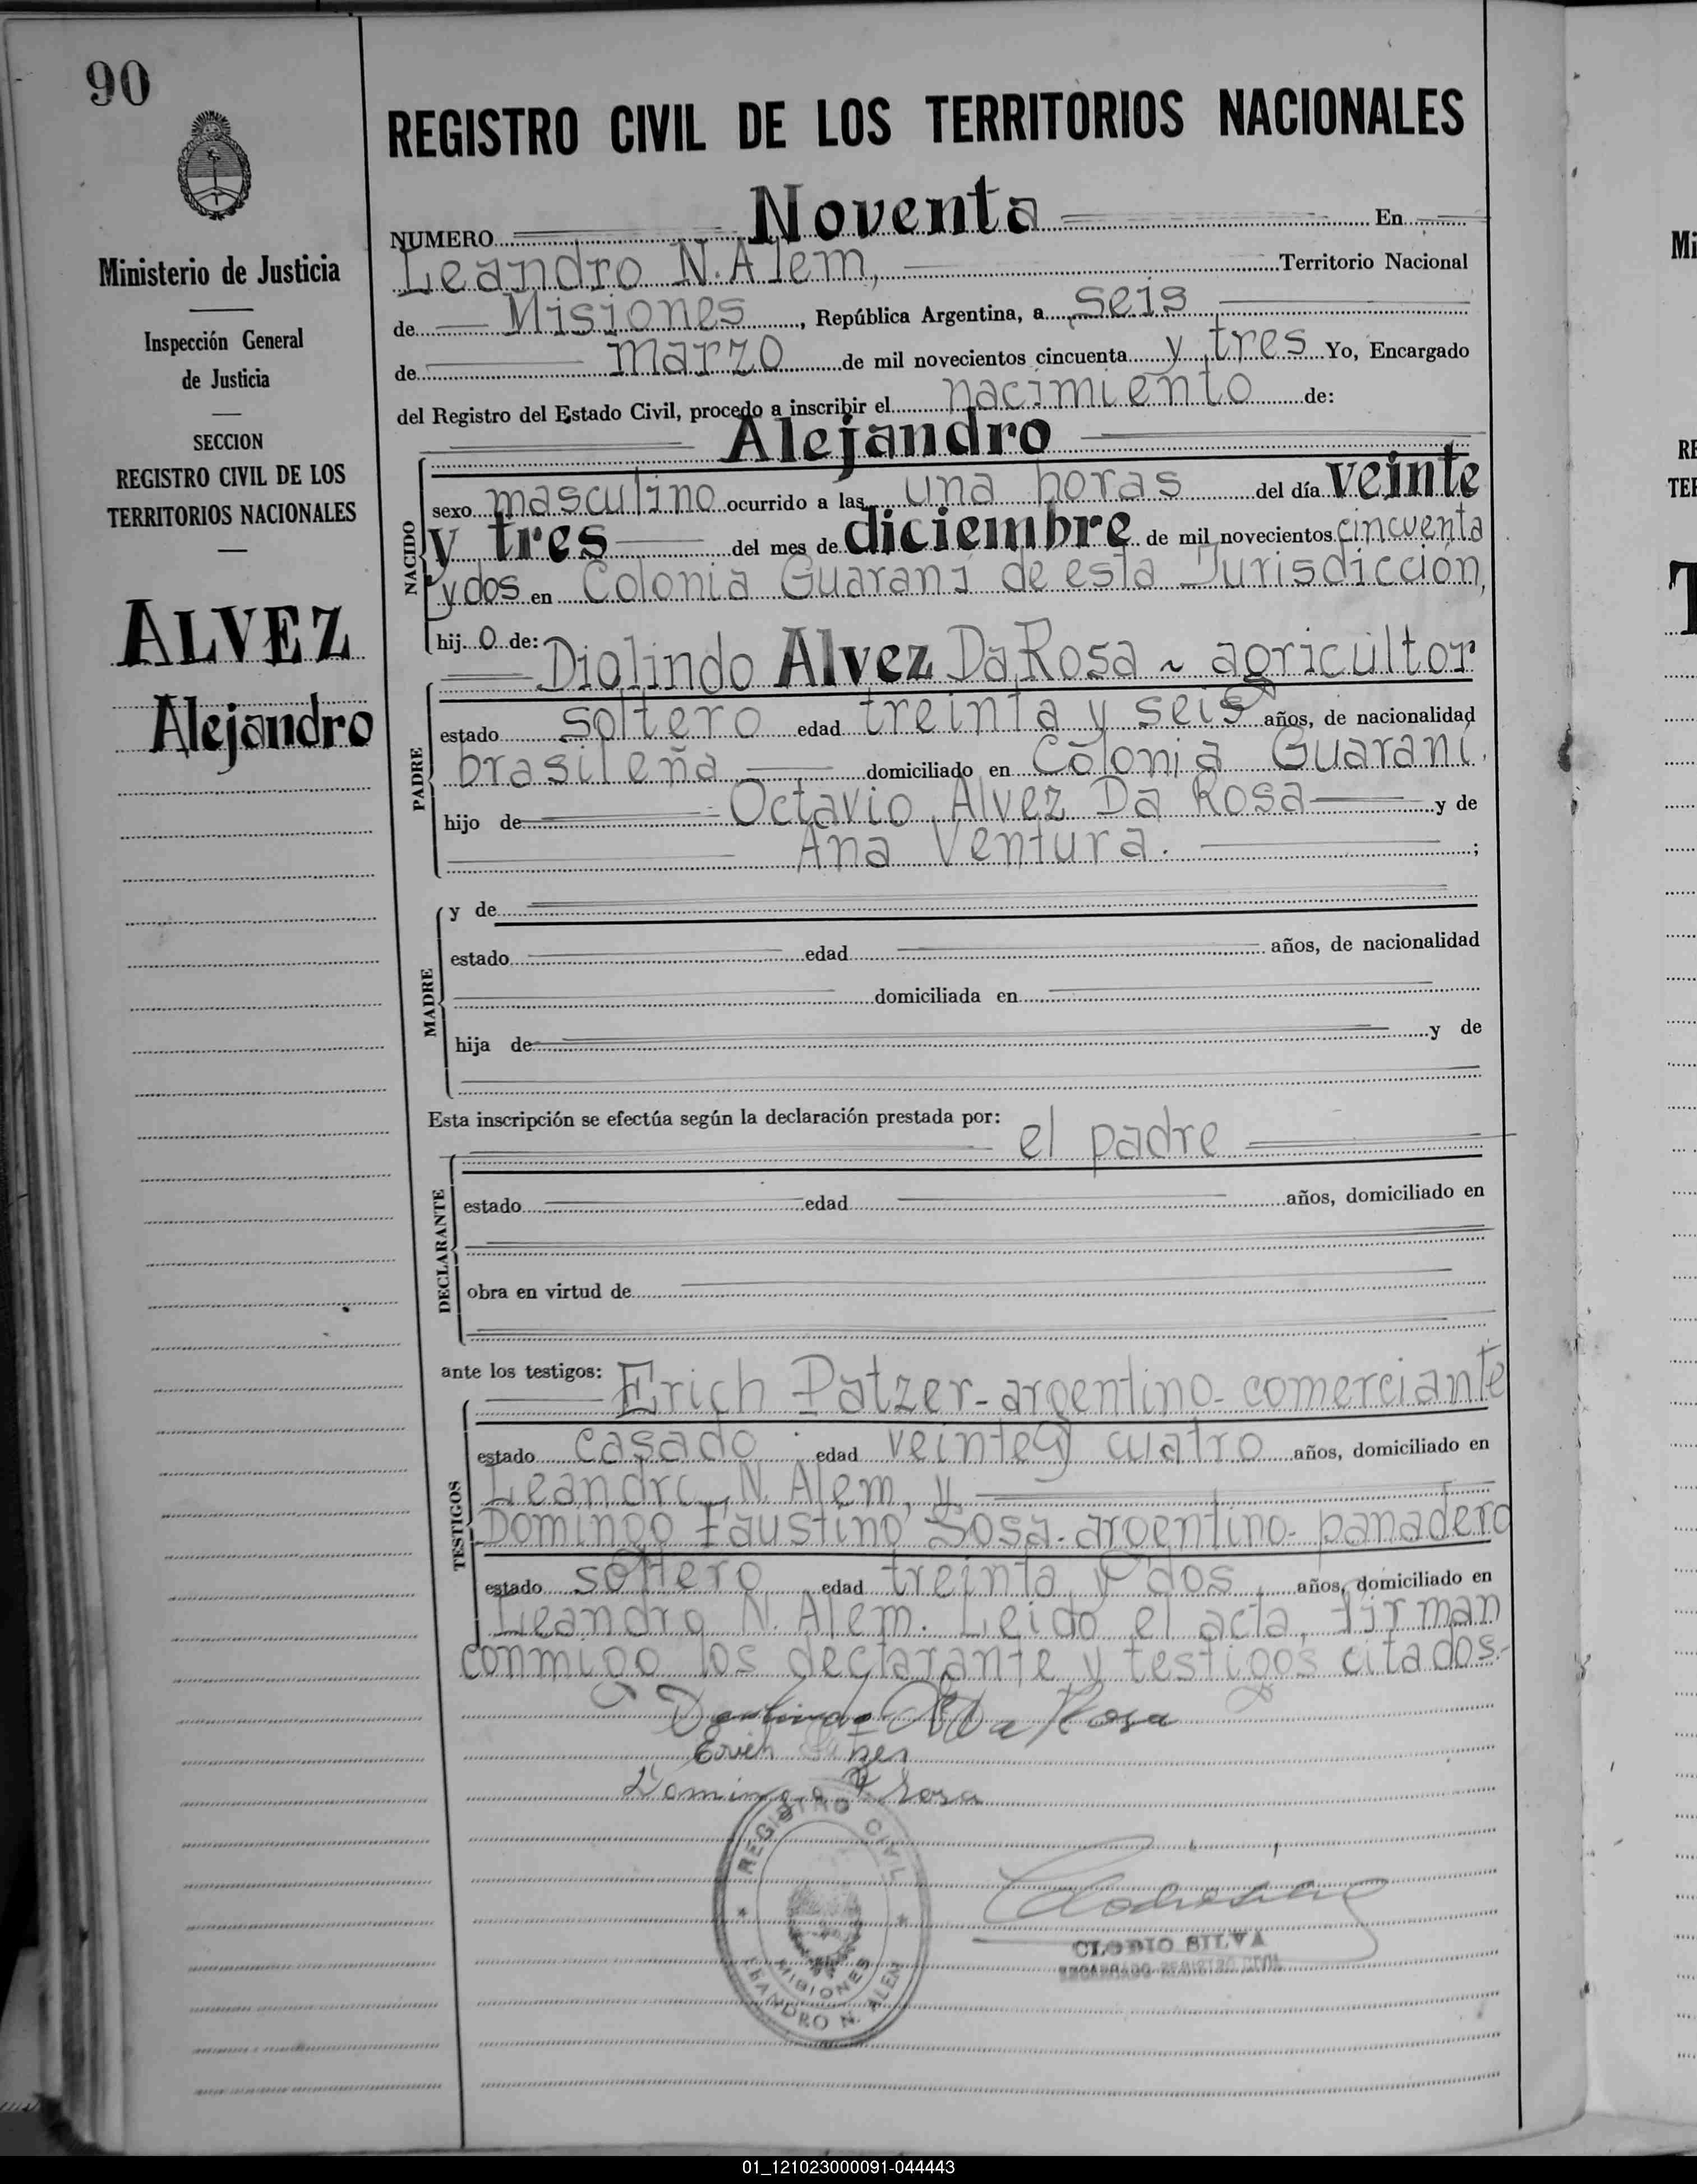 90
REGISTRO CIVIL DE LOS TERRITORIOS NACIONALES
Ministerio de Justicia
Inspección General
de Justicia
SECCION
REGISTRO CIVIL DE LOS
TERRITORIOS NACIONALES
ALVEZ
Alejandro
NUMERO Noventa En
Leandro N. Alem, Territorio Nacional
de Misiones, República Argentina, a seis
de marzo de mil novecientos cincuenta y tres Yo, Encargado
del Registro del Estado Civil, procedo a inscribir el nacimiento de:
Alejandro
NACIDO
sexo masculino ocurrido a las una horas del día veinte
y tres del mes de diciembre de mil novecientos cincuenta
y dos en Colonia Guaraní de esta Jurisdicción,
hij o de:
Diolindo Alvez Da Rosa ~ agricultor
PADRE
estado soltero edad treinta y seis años, de nacionalidad
brasileña domiciliado en Colonia Guaraní,
hijo de Octavio Alvez Da Rosa y de
Ana Ventura. ;
MADRE
y de
estado edad años, de nacionalidad
domiciliada en
hija de y de
Esta inscripción se efectúa según la declaración prestada por:
el padre
DECLARANTE
estado edad años, domiciliado en
obra en virtud de
ante los testigos: Erich Patzer - argentino - comerciante
TESTIGOS
estado casado edad veinte y cuatro años, domiciliado en
Leandro N. Alem, y
Domingo Faustino Sosa - argentino - panadero
estado soltero edad treinta y dos años, domiciliado en
Leandro N. Alem. Leido el acta, firman
conmigo los declarante y testigos citados.-
Da Rosa
Erich
Domingo F Sosa
REGISTRO CIVIL
MISIONES
LEANDRO N. ALEM
CLODIO SILVA
ENCARGADO REGISTRO CIVIL
01_121023000091-044443